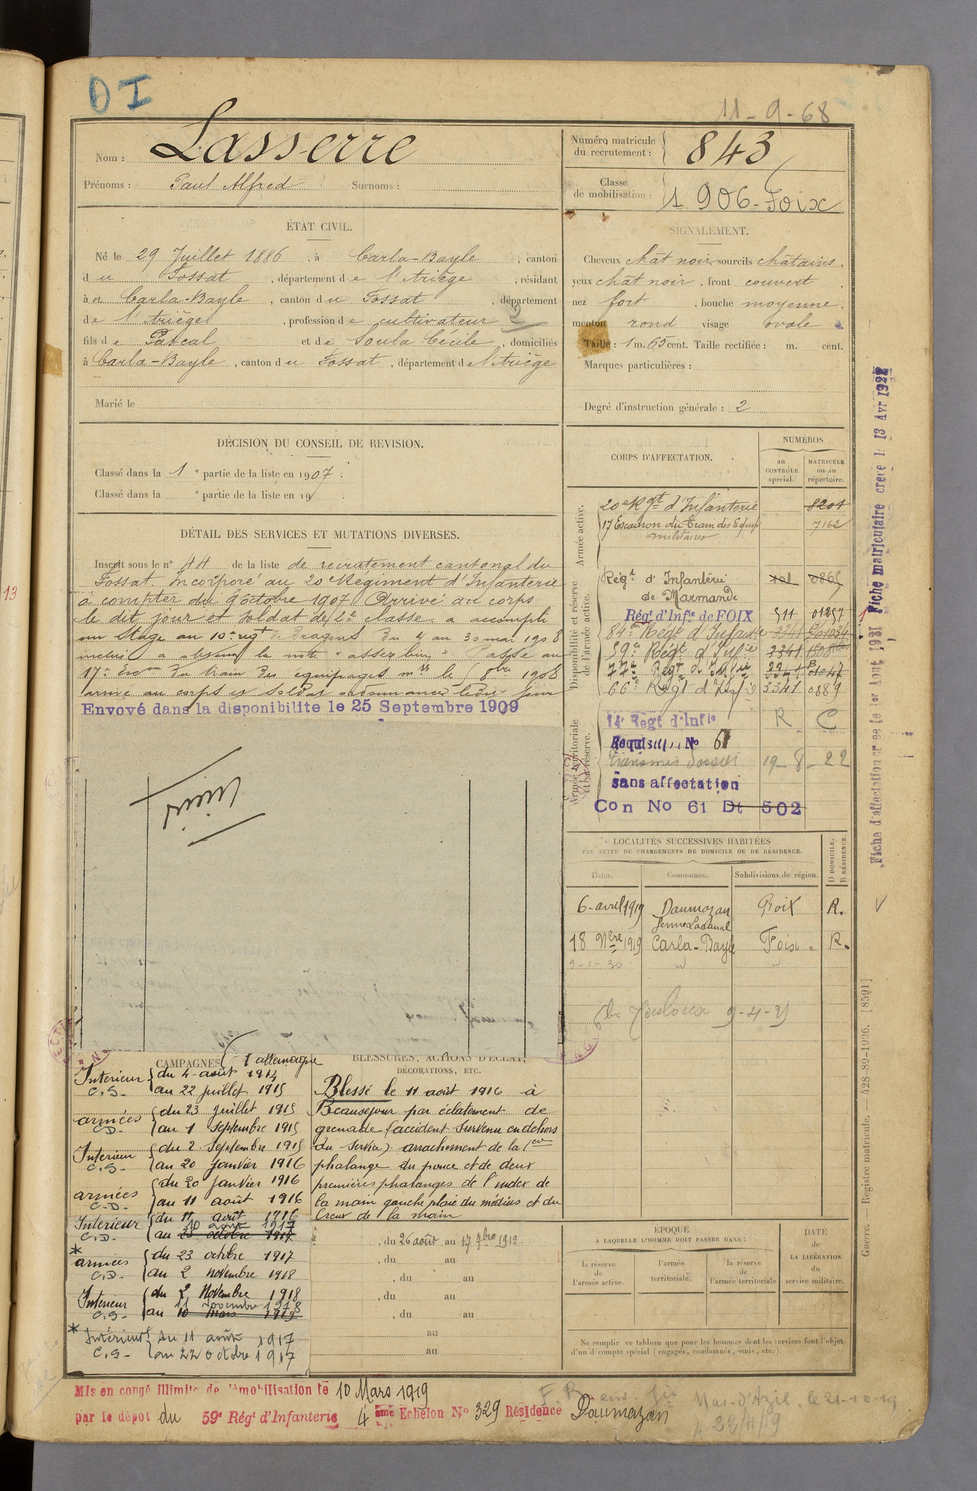 DI
11-9-68
Nom : Lasserre
Prénoms : Paul Alfred Surnoms :
Numéro matricule du recrutement : 843
Classe de mobilisation : 1906-Foix
ÉTAT CIVIL.
Né le 29 Juillet 1886, à Carla-Bayle, canton
du Fossat, département de l'Ariège, résidant
à Carla-Bayle, canton du Fossat, département
de l'Ariège, profession de cultivateur 2
fils de Pascal et de Soula Cécile, domiciliés
à Carla-Bayle, canton du Fossat, département de l'Ariège
Marié le
SIGNALEMENT.
Cheveux chât noir sourcils châtains,
yeux chât noir, front couvert,
nez fort, bouche moyenne,
menton rond visage ovale
Taille : 1 m. 65 cent. Taille rectifiée : m. cent.
Marques particulières :
Degré d'instruction générale : 2
DÉCISION DU CONSEIL DE REVISION.
Classé dans la 1e partie de la liste en 1907.
Classé dans la e partie de la liste en 19
DÉTAIL DES SERVICES ET MUTATIONS DIVERSES.
Inscrit sous le n° 44 de la liste de recrutement cantonal du
Fossat. Incorporé au 20e Régiment d'Infanterie
à compter du 9 octobre 1907. Arrivé au corps
le dit jour et soldat de 2e classe. a accompli
un stage au 10e régt de dragons du 4 au 30 mai 1908
inclus a obtenu la note "assez bien". Passé au
17e du train des équipages mres le 1908
arrivé au corps et soldat
Envoyé dans la disponibilite le 25 Septembre 1909
CORPS D'AFFECTATION.
NUMÉROS
au CONTRÔLE spécial.
MATRICULE ou au répertoire.
Armée active.
20e Rgt d'Infanterie 8201
17 Escadron du Train des Equip militaires 7162
Disponibilité et réserve de l'armée active.
Régt d'Infanterie de Marmande
Régt d'Infie de FOIX 511 01257
84e Régt d'Infanterie
59e Régt d'Infie 3341
77e Régt d'Infie
66e Régt d'Infie 3341 0889
Armée territoriale et sa réserve.
14e Régt d'Infie R C
Requisition No 61
transmis Dossier 19-8-22
sans affectation
Con No 61 Dt 502
LOCALITÉS SUCCESSIVES HABITÉES
PAR SUITE DE CHANGEMENTS DE DOMICILE OU DE RÉSIDENCE.
Dates. Communes. Subdivisions de région. D DOMICILE. R RÉSIDENCE.
6-avril 1919 Daumazan Foix R.
18 9bre 1919 Carla-Bayle Foix R.
Toulouse 9-4-25
CAMPAGNES
Intérieur C.S. du 4 août 1914
au 22 juillet 1915
armées C.D. du 23 juillet 1915
au 1 Septembre 1915
Intérieur C.S. du 2 Septembre 1915
au 20 janvier 1916
armées C.D. du 20 janvier 1916
au 11 août 1916
Intérieur C.D. du 11 août 1916
au 10 août 1917
* armées C.D. du 23 octobre 1917
au 2 novembre 1918
Intérieur C.S. du 2 Novembre 1918
au 11 novembre 1918
* Intérieur C.S. du 11 août 1917
au 22 octobre 1917
BLESSURES, ACTIONS D'ÉCLAT,
DÉCORATIONS, ETC.
Blessé le 11 août 1916 à
Beauséjour par éclatement de
grenade (accident survenu en dehors
du service) arrachement de la 1ere
phalange du pouce et de deux
premières phalanges de l'index de
la main gauche plaie du médius et du
creux de la main
, du 26 août au 17 7bre 1912
, du au
, du au
, du au
, du au
au
au
ÉPOQUE
À LAQUELLE L'HOMME DOIT PASSER DANS :
la réserve de l'armée active.
l'armée territoriale.
la réserve de l'armée territoriale
DATE de LA LIBÉRATION du service militaire.
Ne remplir ce tableau que pour les hommes dont les services font l'objet
d'un décompte spécial (engagés, condamnés, omis, etc.).
Mis en congé illimité de démobilisation le 10 Mars 1919
par le dépot du 59e Régt d'Infanterie 4 ème Echelon No 329 Résidence Daumazan
Mas-d'Azil, le 21-10-19
22/11/19
Fiche matriculaire créée le 13 Avr 1922
Guerre. Registre matricule. — 428-89-1906. [8591]
13